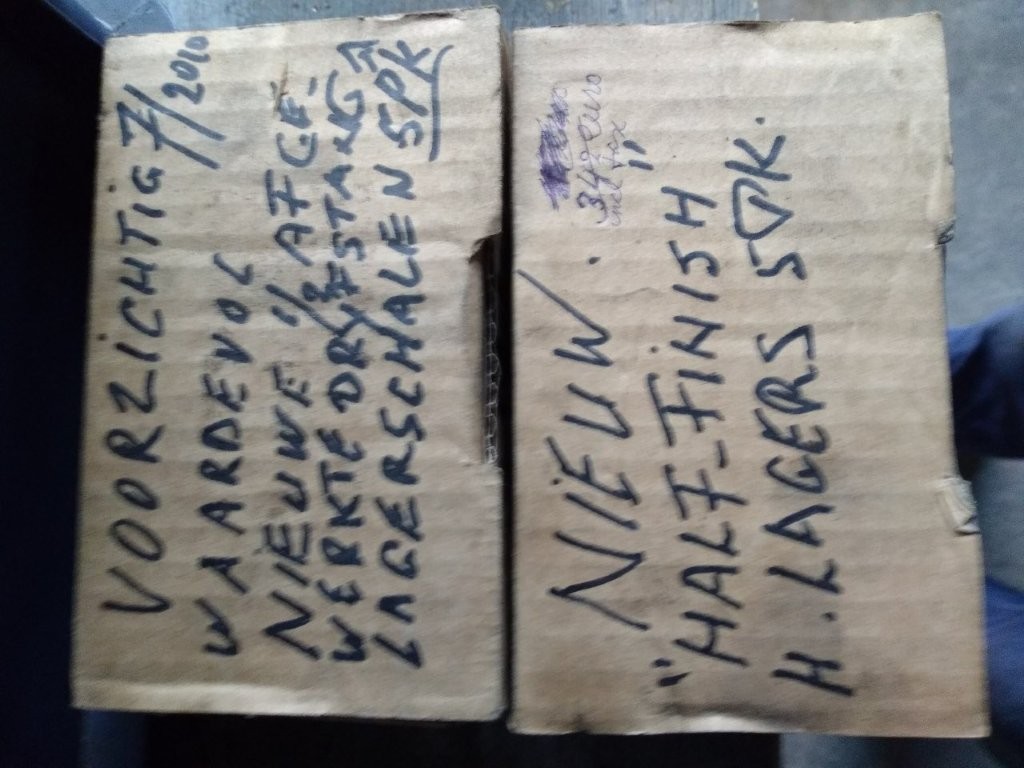 VOORZICHTIG 7/2010
WAARDEVOL
NIEUWE 1/ AFGE-
WERKTE DRYFSTANG
LAGERSCHALEN 5PK
NIEUW.
349 euro
incl tax
"HALF-FINISH"
H. LAGERS 5 PK.